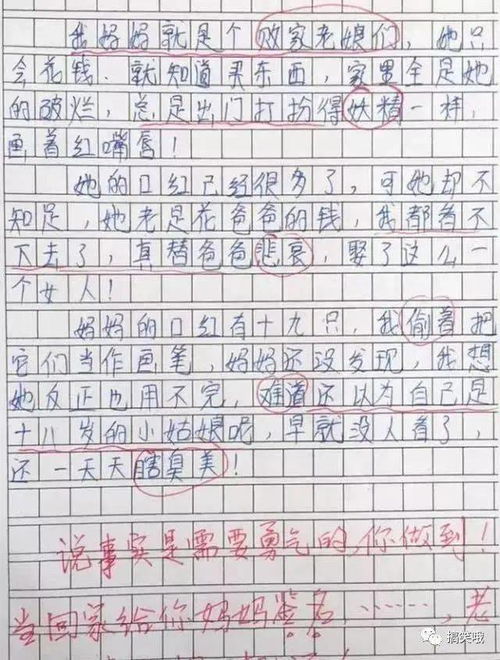 我妈妈就是个败家老娘们，她只
会花钱．就知道买东西，家里全是她
的破烂，总是出门打扮得妖精一样，
画着红嘴唇！
她的口红已经很多了，可她却不
知足，她老是花爸爸的钱，我都看不
下去了，真替爸爸悲哀，娶了这么一
个女人！
妈妈的口红有十九只，我偷着把
它们当作画笔，妈妈还没发现，我想
她反正也用不完，难道还以为自己是
十八岁的小姑娘呢，早就没人看了，
还一天天瞎臭美！
说事实是需要勇气的，你做到！
当回家给你妈妈签名……，老
搞笑哦